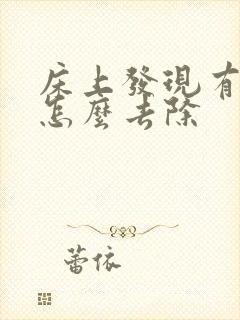 床上發現有
怎麼去除
蕾依